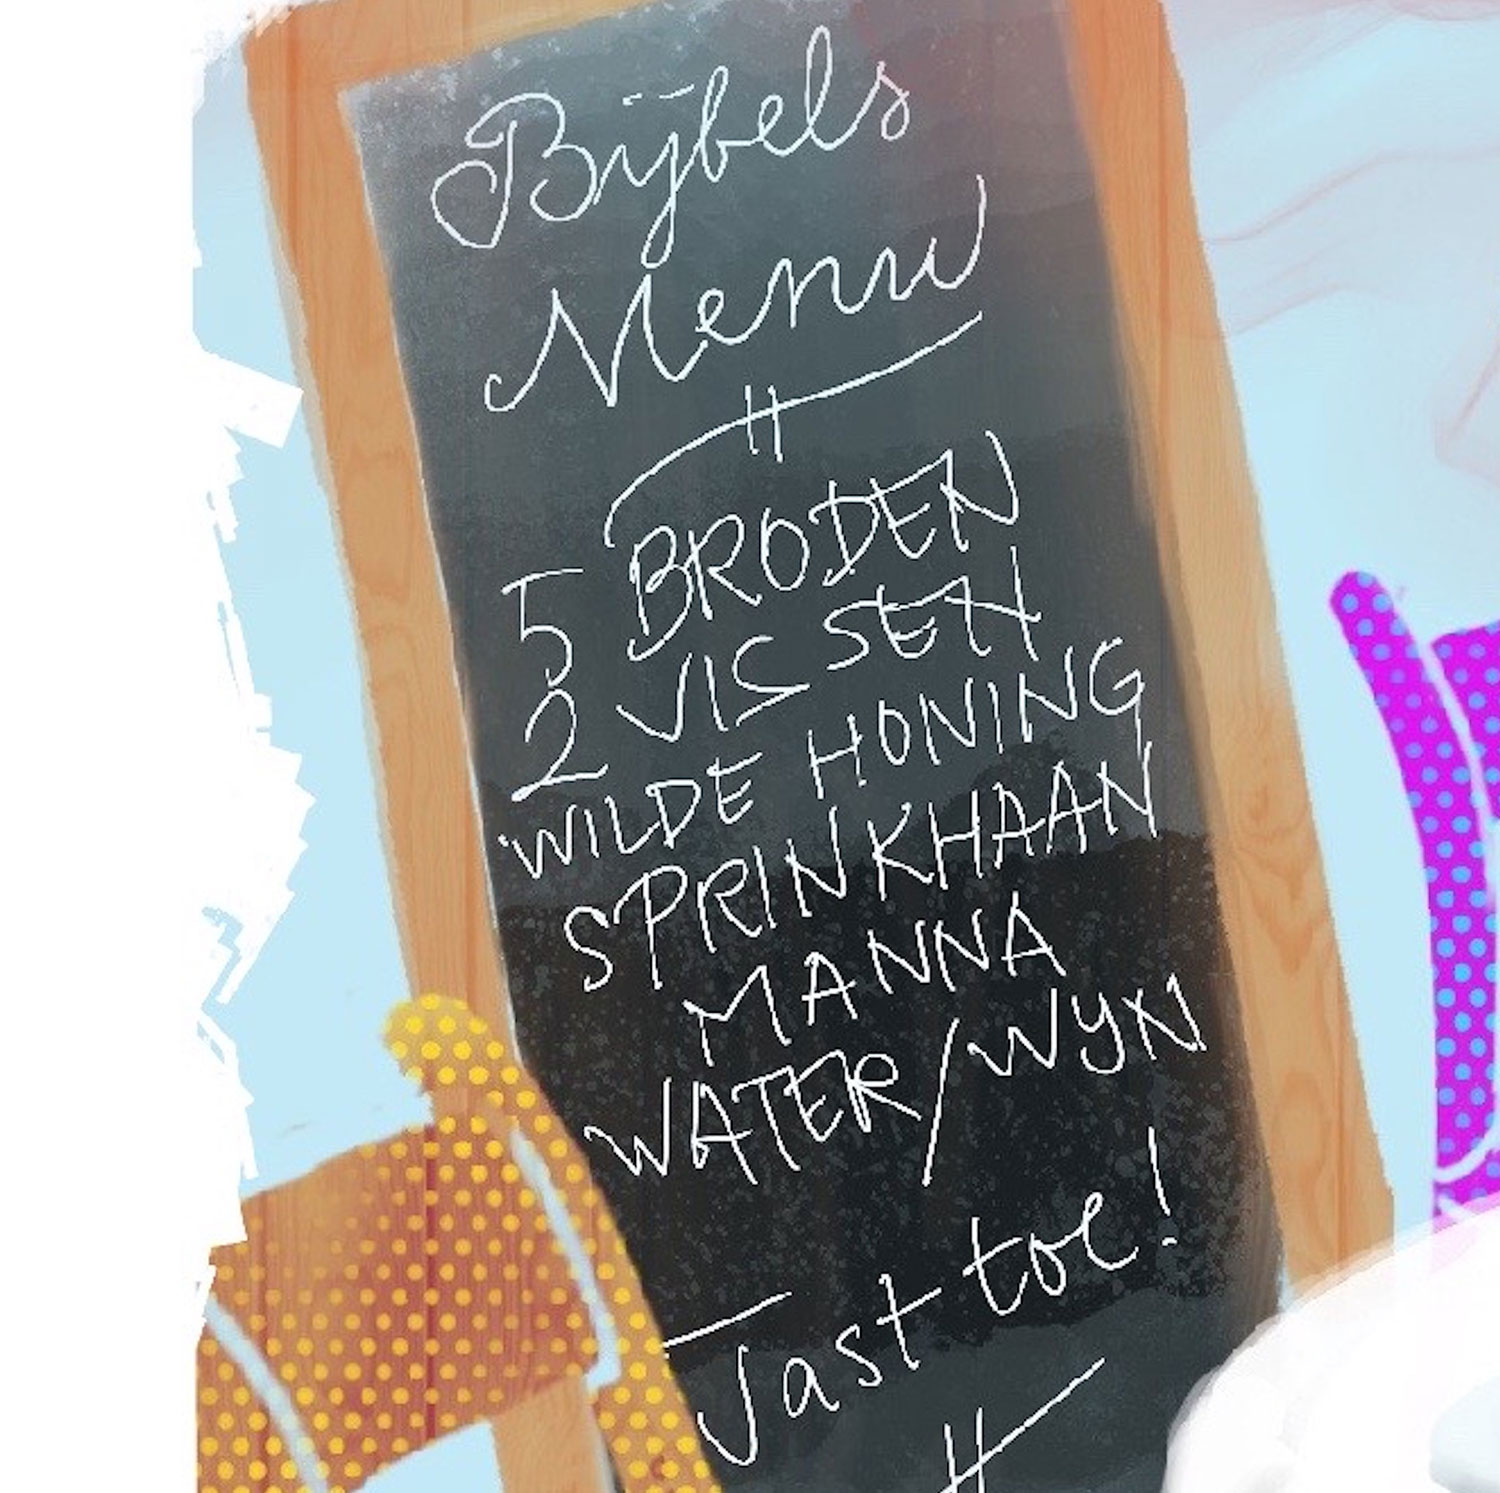 Bijbels
Menu
5 BRODEN
2 VISSEN
WILDE HONING
SPRINKHAAN
MANNA
WATER/WYN
Tast toe!